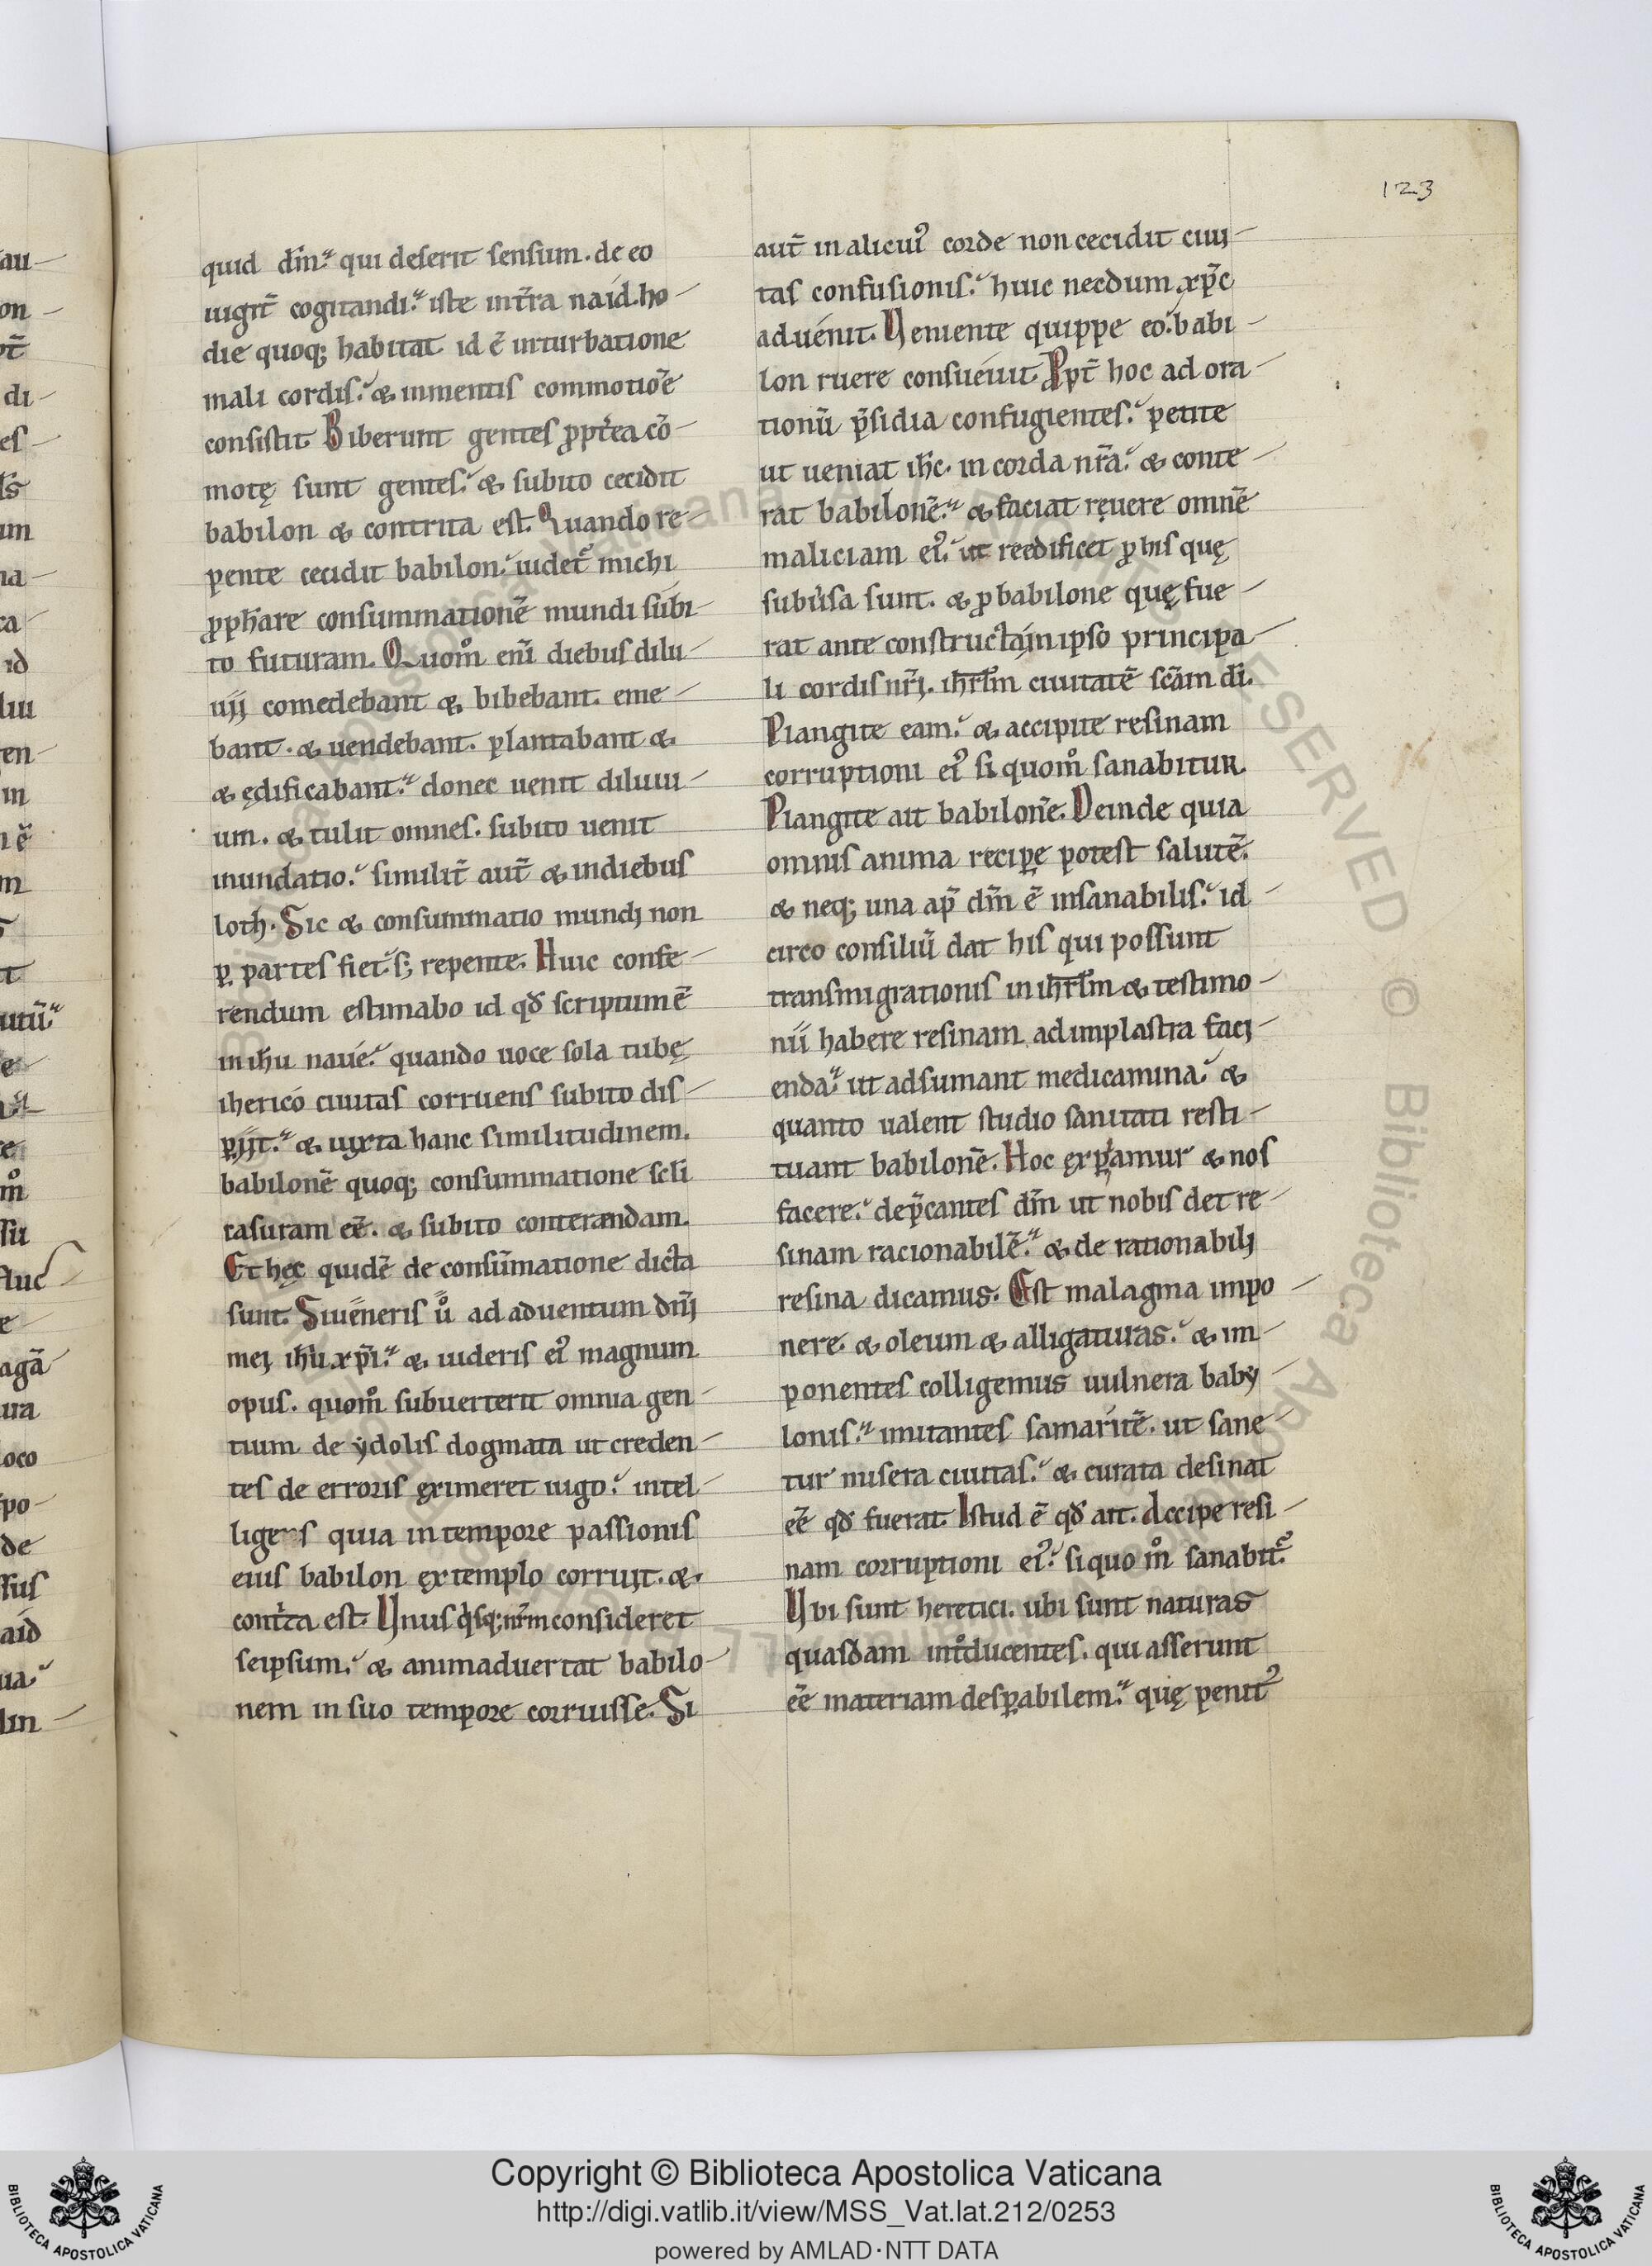 123
quid dm̄. qui deserit sensum. de eo
iugit̄ cogitandi. iste in tr̄ra naid. ho-
die quoq; habitat id ē inturbatione
mali cordis. & inmentis commotiōe
consistit. Biberunt gentes ꝓpt̄ea cō-
motę sunt gentes. & subito cecidit
babilon & contrita est. Quando re-
pente cecidit babilon. uidet᷑ michi
ꝓph̄are consummationē mundi subi-
to futuram. Quom̊ eni̅ diebus dilu-
uij comedebant & bibebant. eme-
bant. & uendebant. plantabant &
& ędificabant. donec uenit diluui-
um. & tulit omnes. subito uenit
inundatio. similit̄ aut̄ & indiebus
loth. Sic & consummatio mundi non
ꝑ partes fiet. s; repente. Huic confe-
rendum estimabo id qđ scriptum ē
in ih̄u naue. quando uoce sola tubę
iherico ciuitas corruens subito dis-
ꝑijt. & iuxta hanc similitudinem.
babilonē quoq; consummatione scl̄i
casuram eē. & subito conterandam.
Et hęc quidē de consūmatione dicta
sunt. Si ueneris ů ad aduentum dn̄i
mei ih̄u xp̄i. & uideris eiꝰ magnum
opus. quom̊ subuerterit omnia gen-
tium de ydolis dogmata ut creden-
tes de erroris eximeret iugo. intel-
ligens quia in tempore passionis
eius babilon extemplo corruit. &
contͥta est. Vnus qͥsq; nr̄m consideret
seipsum. & animaduertat babilo-
nem in suo tempore corruisse. Si
aut̄ in alicuiꝰ corde non cecidit ciui-
tas confusionis. huic necdum xp̄c
aduenit. Veniente quippe eo. babi-
lon ruere consueuit. Ꝓpt̄ hoc ad ora-
tionū p̄sidia confugientes. petite
ut ueniat ih̄c. in corda nr̄a. & conte-
rat babilonē. & faciat ręuere omnē
maliciam eiꝰ. ut reedificet ꝓ his quę
subuͥsa sunt. & ꝓ babilone quę fue-
rat ante constructa, in ipso principa-
li cordis nr̄i. ih̄rlm̄ ciuitatē sc̄am di̅.
Plangite eam. & accipite resinam
corruptioni eiꝰ si quom̊ sanabitur.
Plangite ait babilonē. Deinde quia
omnis anima reciꝑe potest salutē.
& neq; una ap̄ dm̄ ē insanabilis. id-
circo consiliū dat his qui possunt
transmigrationis in ih̄rlm̄ & testimo-
nii habere resinam ad implastra faci-
enda. ut adsumant medicamina. &
quanto ualent studio sanitati resti-
tuant babilonē. Hoc exꝑiamur & nos
facere. dep̄cantes dm̄ ut nobis det re-
sinam racionabilē. & de rationabili
resina dicamus. Est malagma impo-
nere & oleum & alligaturas. & im-
ponentes colligemus uulnera baby-
lonis. imitantes samaritē. ut sane-
tur misera ciuitas. & curata desinat
eē qđ fuerat. Istud ē qđ ait. Accipe resi-
nam corruptioni eiꝰ. si quo m̊ sanabit᷑.
Vbi sunt heretici. ubi sunt naturas
quasdam intͦducentes. qui asserunt
eē materiam desꝑabilem. quę penitꝰ
Copyright © Biblioteca Apostolica Vaticana
http://digi.vatlib.it/view/MSS_Vat.lat.212/0253
powered by AMLAD·NTT DATA
BIBLIOTECA APOSTOLICA VATICANA
BIBLIOTECA APOSTOLICA VATICANA